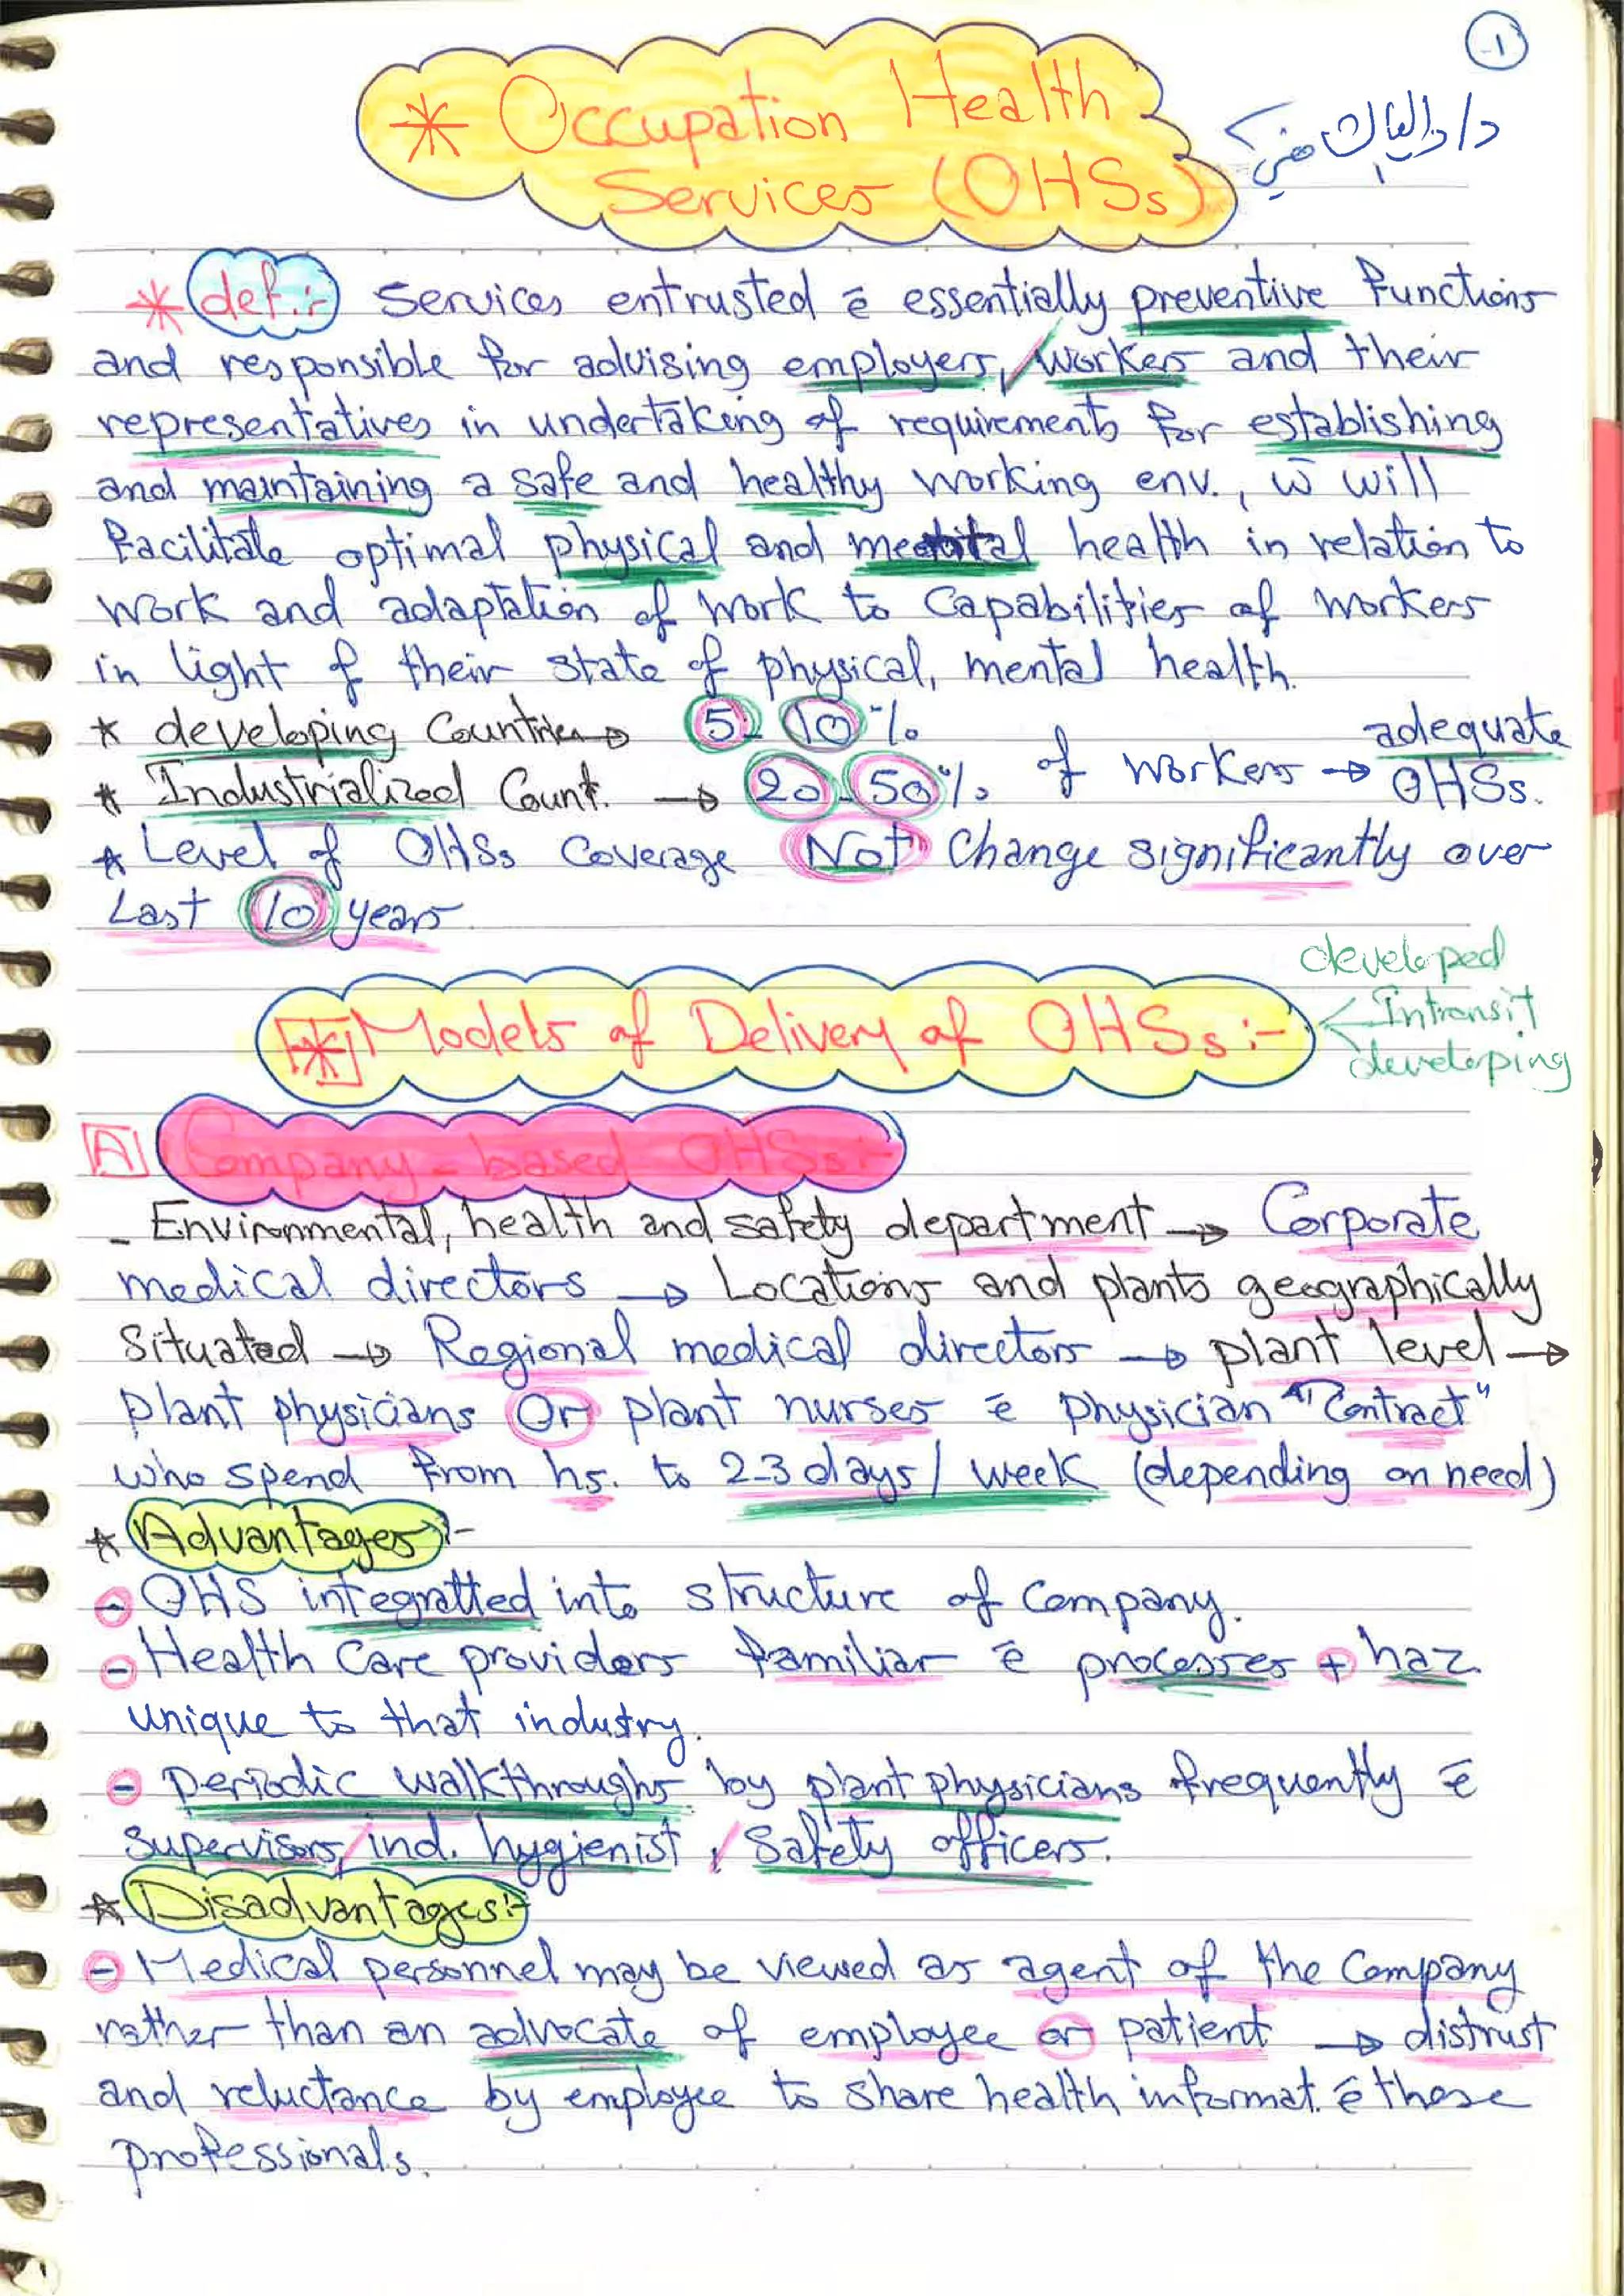 -1
* Occupation Health
Services (OHSs)
د/
* def.:- Services entrusted ē essentially preventive functions
and responsible for advising employers, workers and their
representatives in undertaking of requirements for establishing
and maintaining a safe and healthy working env., w̄ will
facilitate optimal physical and mental health in relation to
work and adaptation of work to capabilities of workers
in light of their state of physical, mental health.
* developing Countries → 5-10%
* Industrialized Count. → 20-50% of workers → adequate OHSs.
* Level of OHSs Coverage Not Change significantly over
Last 10 years
* Models of Delivery of OHSs:-
developed
Intransit
developing
A Company-based OHSs:-
- Environmental, health and safety department → Corporate
medical directors → Locations and plants geographically
Situated → Regional medical directors → plant level →
plant physicians Or plant nurses ē physician "Contract"
who spend from hs. to 2-3 days/week (depending on need)
* Advantages:-
- OHS integratted into structure of Company.
- Health Care providers familiar ē processes + haz.
unique to that industry.
- periodic walkthroughs by plant physicians frequently ē
supervisors, ind. hygienist, Safety officers.
* Disadvantages:-
- Medical personnel may be viewed as agent of the Company
rather than an advocate of employee or patient → distrust
and reluctance by employee to share health informat. ē these
professionals.